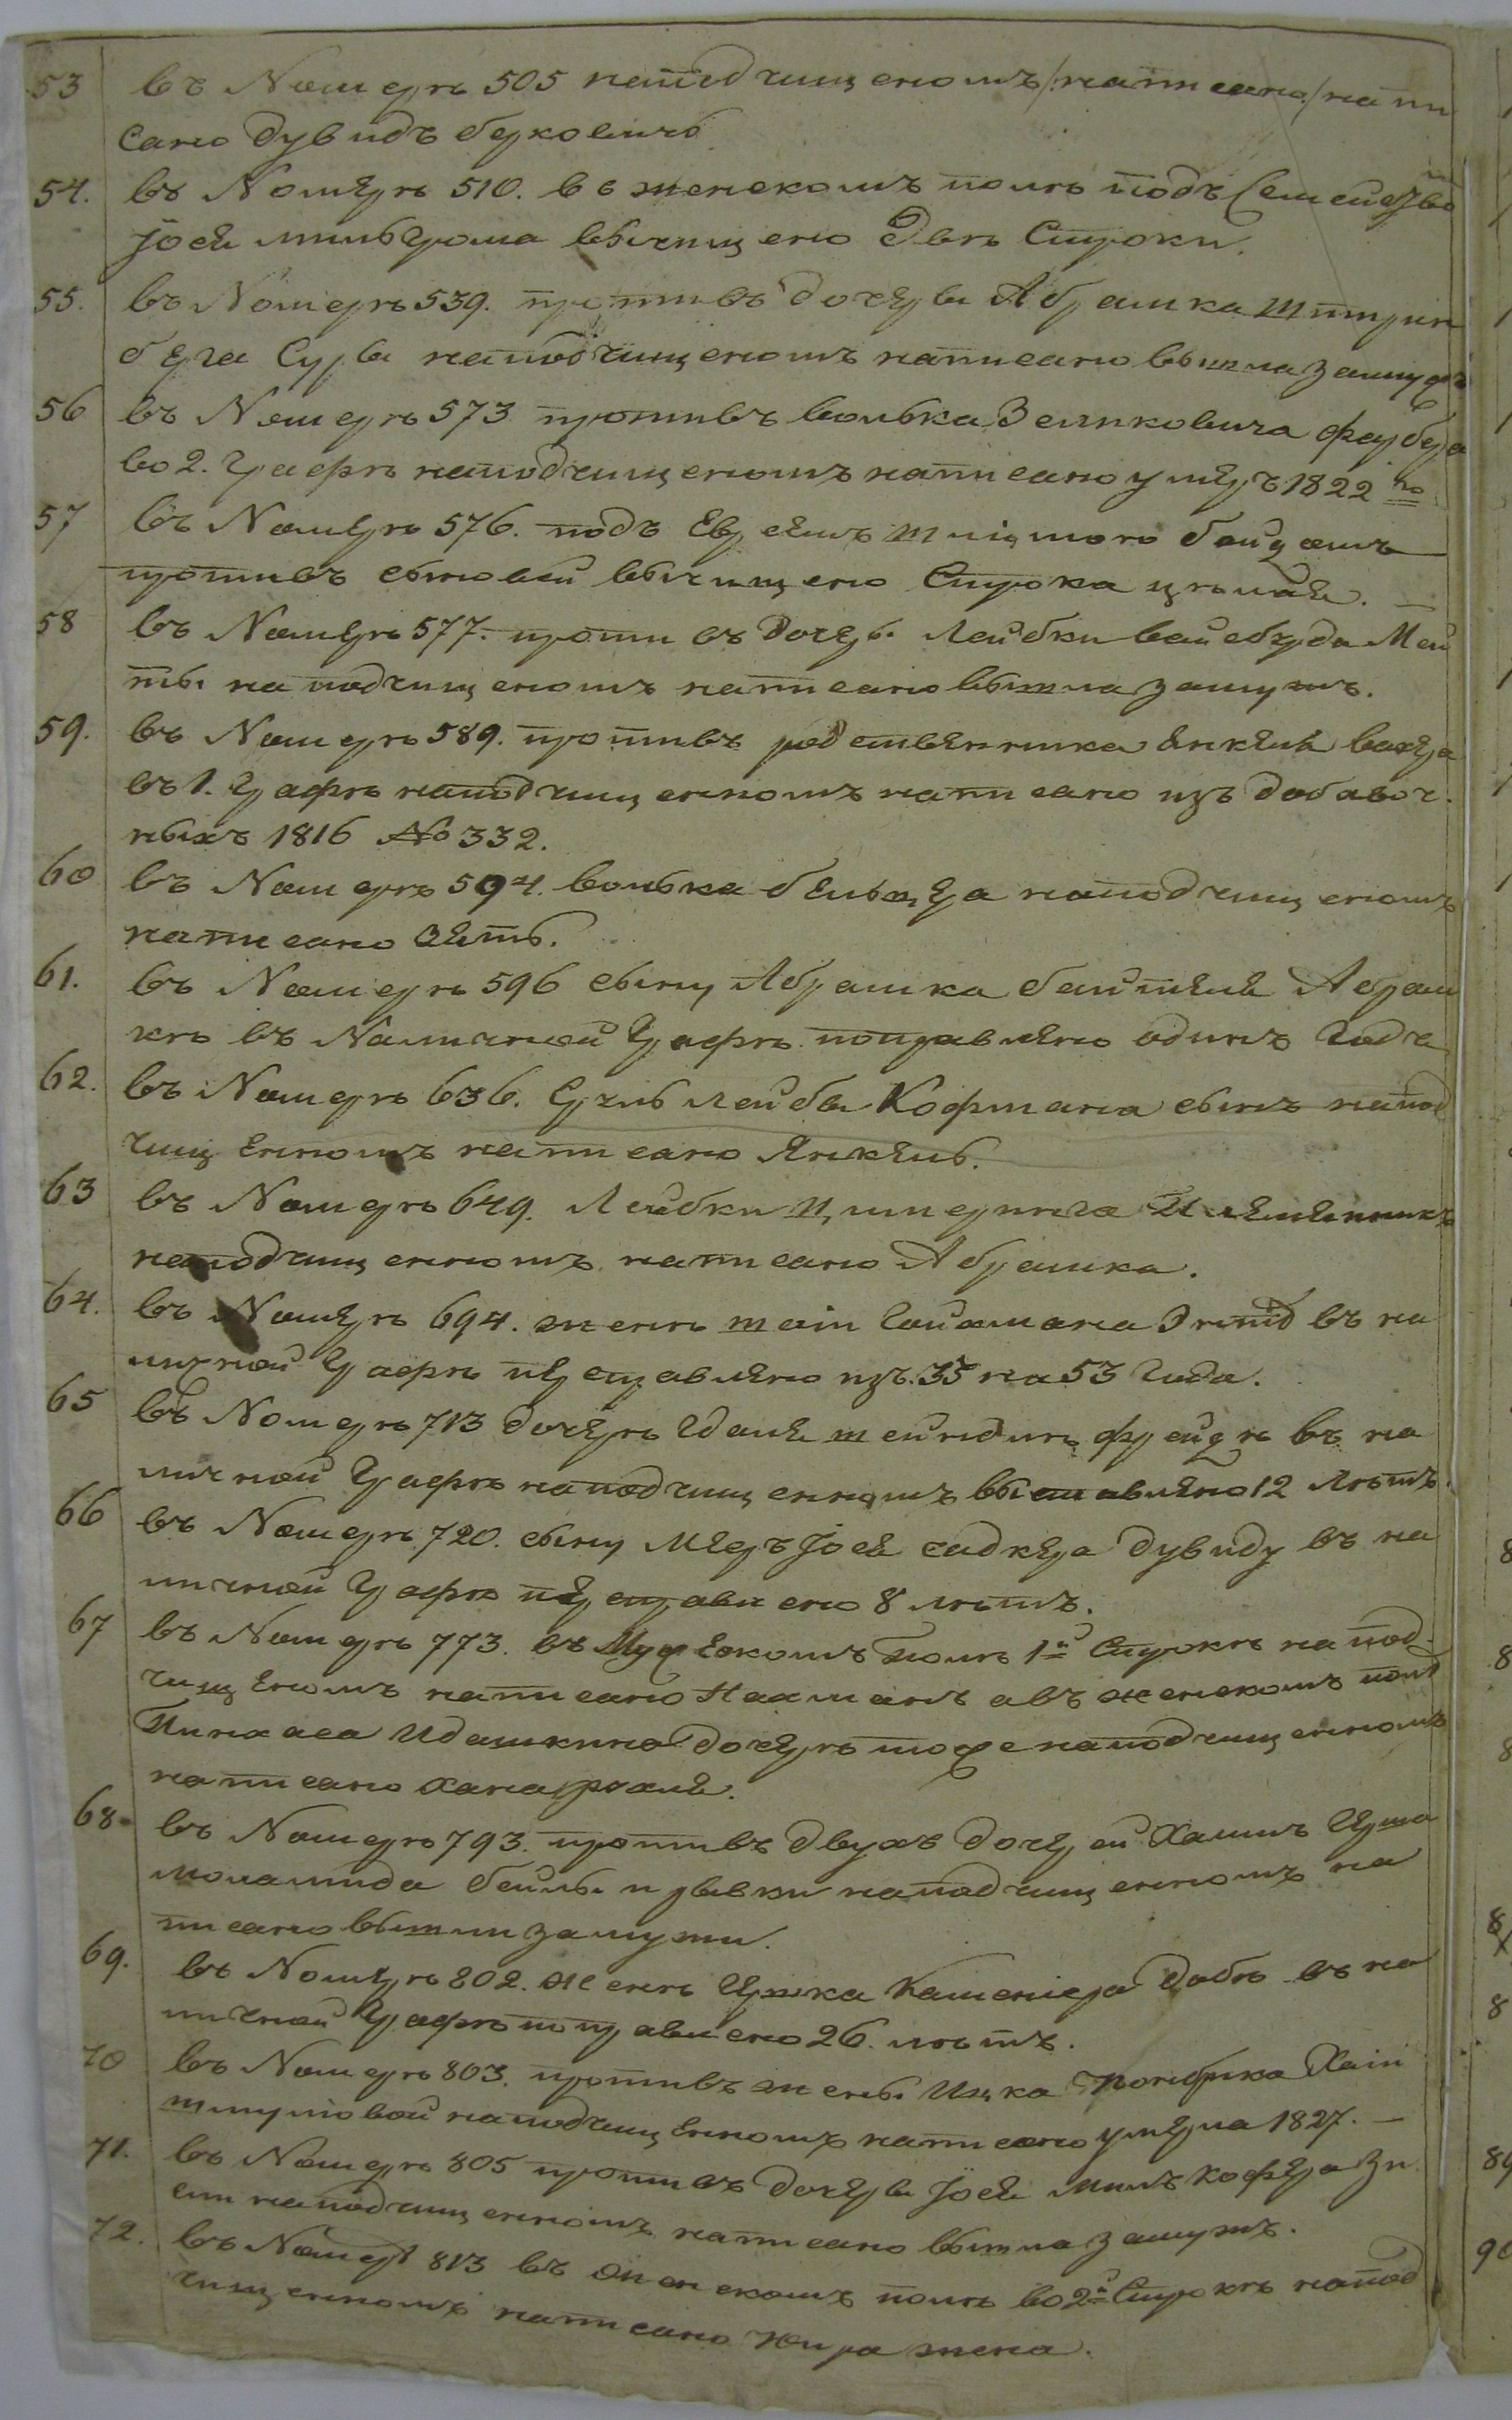 53 въ Номерѣ 505 наподчищеномъ /:написано:/ напи
сано Дувидъ берковичъ
54. въ Номерѣ 510. въ женскомъ полѣ подъ Семейство
Іося мильгрома вычищено Двѣ Строки.
55. въ Номерѣ 539. противъ дочери Абрамка Штрин
берга Суры наподчищеномъ написано вышла замужъ
56 въ Номерѣ 573 противъ волька Зеликовича фарбера
во 2. Графѣ наподчищеномъ написано умеръ 1822 го
57 въ Номерѣ 576. подъ Евреямъ
противъ сыновей вычищено Строка цѣлая. —
58 въ Номерѣ 577. противъ дочери Лейбки вайсборда Мей
ты на подчищеномъ написано вышла замужъ.
59. въ Номерѣ 589. противъ родственника Янкеля вахера
въ 1. Графѣ наподчищенномъ написано изъ добавоч.
ныхъ 1816 № 332.
60 въ Номерѣ 594. волька бельцера наподчищеномъ
написано зять.
61. въ Номерѣ 596 сыну Абрамка Абрам
кѣ въ Наличной Графѣ поправлено одинъ Годъ
62. въ Номерѣ 636. Сруль Лейбы Кофмана сынъ напод
чищенномъ написано Янкель.
63 въ Номерѣ 649. Лейбки Цимеринга Племянникъ
наподчищенномъ написано Абрамка.
64. въ Номерѣ 694. женѣ шаіи Гойхмана Энтѣ въ на
личной Графѣ переправлено изъ 35 на 53 Года.
65 въ Номерѣ 713 дочерѣ Гдаля шейндинѣ фрейдѣ въ на
личной Графѣ наподчищенномъ выставлено 12 лѣтъ.
66 въ Номерѣ 720. сыну Мееръ Іося садкера дувиду въ на
личной Графѣ переправлено 8 лѣтъ.
67 въ Номерѣ 773. въ Мужескомъ полѣ 1й Строкѣ на под.
чищеномъ написано Нахманъ а въ женскомъ полѣ
Пинхаса Идашкина дочерѣ тоже наподчищенномъ
написано ханарохля.
68. въ Номерѣ 793. противъ двухъ дочерей Хаимъ Герша
моламида бейлы и рывки наподчищенномъ на
писано вышли замужи.
69. въ Номерѣ 802. Женѣ Гершка Каменіера Добѣ въ на
личной Графѣ поправлено 26. лѣтъ.
70 въ Номерѣ 803. противъ жены Ицка Хаіи
шмулiовой наподчищенномъ написано умерла 1827. —
71. въ Номерѣ 805 противъ дочеры Іося милькофера Зи
си наподчищенномъ написано вышла замужъ.
72. въ Номерѣ 813 въ Женскомъ полѣ во 2й Строкѣ напод
чищенномъ написано жена.